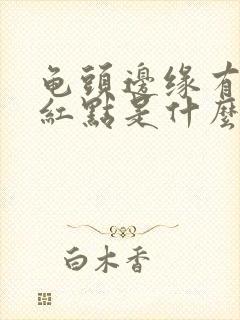 龟頭邊缘有
紅點是什麼
白木香